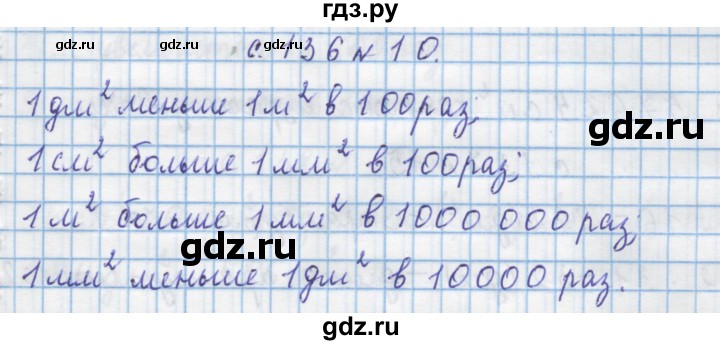 гдз.ру
gdz.ru gdz.ru gdz.ru
с. 136 № 10.
1 дм² меньше 1 м² в 100 раз;
gdz.ru gdz.ru gdz.ru
1 см² больше 1 мм² в 100 раз;
1 м² больше 1 мм² в 1000 000 раз;
gdz.ru gdz.ru
1 мм² меньше 1 дм² в 10000 раз.
gdz.ru gdz.ru gdz.ru
gdz.ru